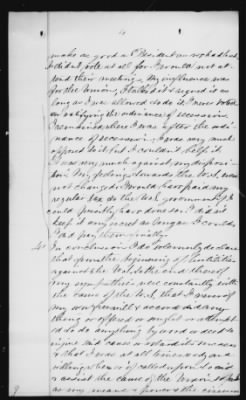 make as good a President as
I did not vote at all for I would not at
tend their meeting. My influence was
for the Union, I talked it & urged it as
long as I was allowed to do it I never voted
on ratifying the ordinance of secession
I remained where I was after the ordi
nance of secession. I was as much
opposed to it but I couldn't help it.
It was very much against my disposi
tion My feelings towards the Govt. were
not changed I would have paid my
regular tax to the US government if I
could possibly have done so. I didn't
keep it any secret as long as I could
talk
40 In conclusion I do solemnly declare
that from the beginning of hostilities
against the U.S. to the end thereof
my sympathies were constantly with
the cause of the U.S. that I never of
my own free will & accord did any
thing or offered or sought or attempt
ed to do anything by word or deed to
injure said cause or retard its success
& that I was at all times ready and
willing when or if called upon to aid
& assist the cause of the Union so far
as my means & power & the circum